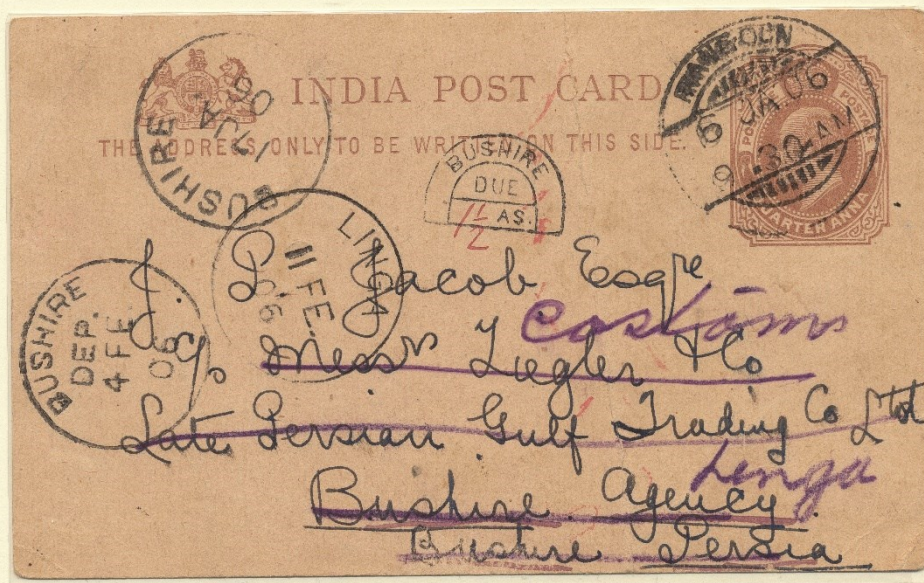 INDIA POST CARD
THE ADDRESS ONLY TO BE WRITTEN ON THIS SIDE.
RANGOON
6 JA 06
9 .30 AM
POSTAGE
QUARTER ANNA
BUSHIRE
17 JA
06
BUSHIRE
DUE
1 1/2 AS.
LINGA
11 FE.
06
BUSHIRE
DEP.
4 FE
06
J. P. Jacob Esqre
Costoms
c/o Messrs Ziegler & Co
Late Persian Gulf Trading Co Ltd
Lenga
Bushire Agency.
Bushire Persia